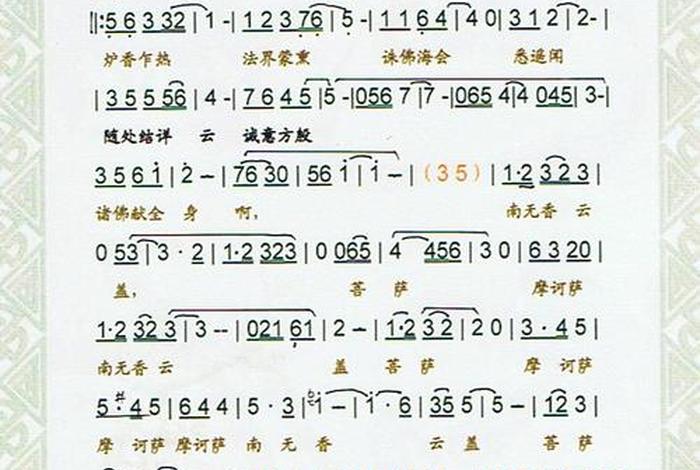 ‖:5 6 3 3 2 | 1 - | 1 2 3 7 6 | 5 - | 1 1 6 4 | 4 0 | 3 1 2 | 2 - |
炉香乍热 法界蒙熏 诛佛海会 悉遥闻
| 3 5 5 5 6 | 4 - | 7 6 4 5 | 5 - | 0 5 6 7 | 7 - | 0 6 5 4 | 4 0 4 5 | 3 - |
随处结详 云 诚意方殷
3 5 6 1 | 2 - | 7 6 3 0 | 5 6 1 | 1 - | ( 3 5 ) | 1·2 3 2 3 |
诸佛献全 身 啊, 南无香 云
0 5 3 | 3 · 2 | 1·2 3 2 3 | 0 0 6 5 | 4 4 5 6 | 3 0 | 6 3 2 0 |
盖, 菩 萨 摩诃萨
1·2 3 2 3 | 3 - - | 0 2 1 6 1 | 2 - | 1·2 3 2 | 2 0 | 3 · 4 5 |
南无香 云 盖 菩 萨 摩 诃萨
5 · #4 5 | 6 4 4 | 5 · 3 | 1 - | 1 · 6 | 3 5 5 | 5 - | 1 2 3 |
摩 诃萨 摩诃萨 南 无 香 云 盖 菩 萨